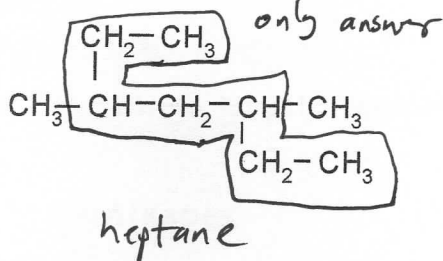 only answer
CH₂—CH₃
CH₃—CH—CH₂—CH—CH₃
CH₂—CH₃
heptane